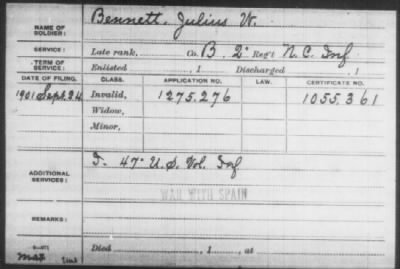 NAME OF SOLDIER: Bennett, Julius W.
SERVICE: Late rank, Co. B 2" Reg't N.C. Inf
TERM OF SERVICE: Enlisted , 1 Discharged , 1
DATE OF FILING. CLASS. APPLICATION NO. LAW. CERTIFICATE NO.
1901 Sept. 24 Invalid, 1275.276 1055.361
Widow,
Minor,
ADDITIONAL SERVICES: I- 47" U.S. Vol. Inf
WAR WITH SPAIN
REMARKS:
Died , 1 , at